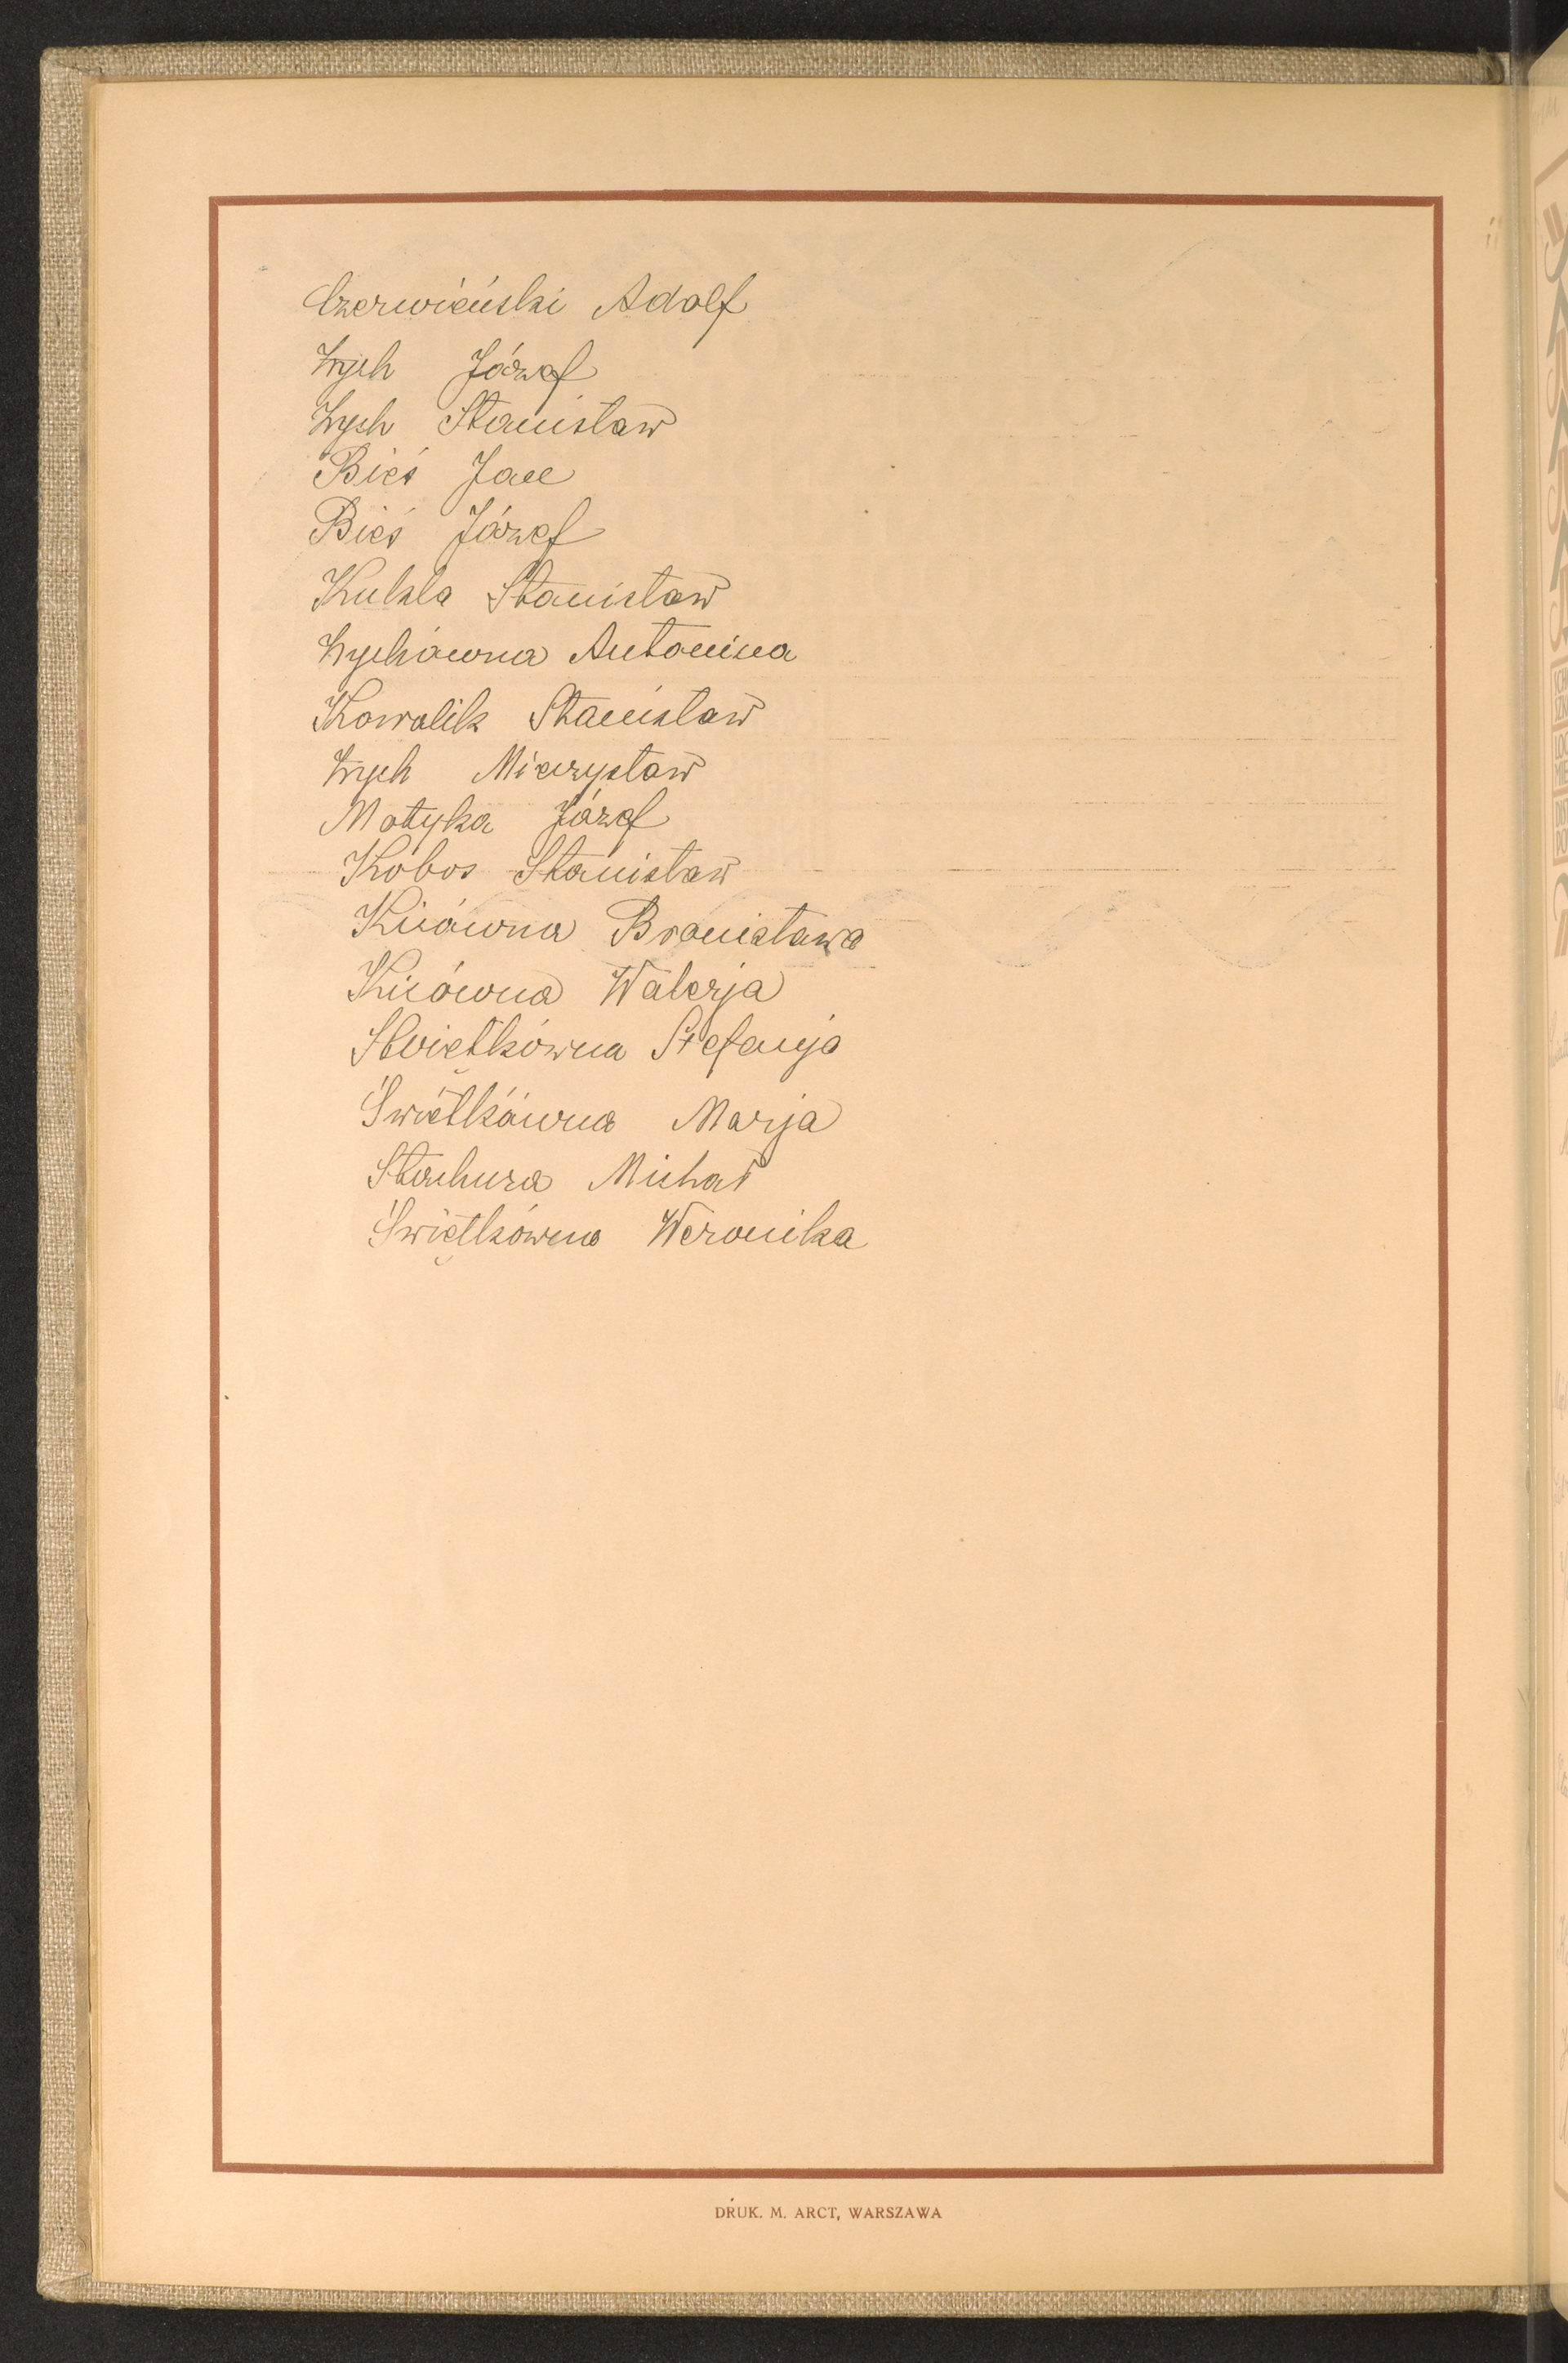 Czerwiński Adolf
Zych Józef
Zych Stanisław
Bieś Jan
Bieś Józef
Kukla Stanisław
Zychówna Antonina
Kowalik Stanisław
Zych Mieczysław
Motyka Józef
Kobos Stanisław
Kisówna Bronisława
Kisówna Walerja
Świętkówna Stefanja
Świętkówna Marja
Stachura Michał
Świętkówna Weronika
DRUK. M. ARCT, WARSZAWA